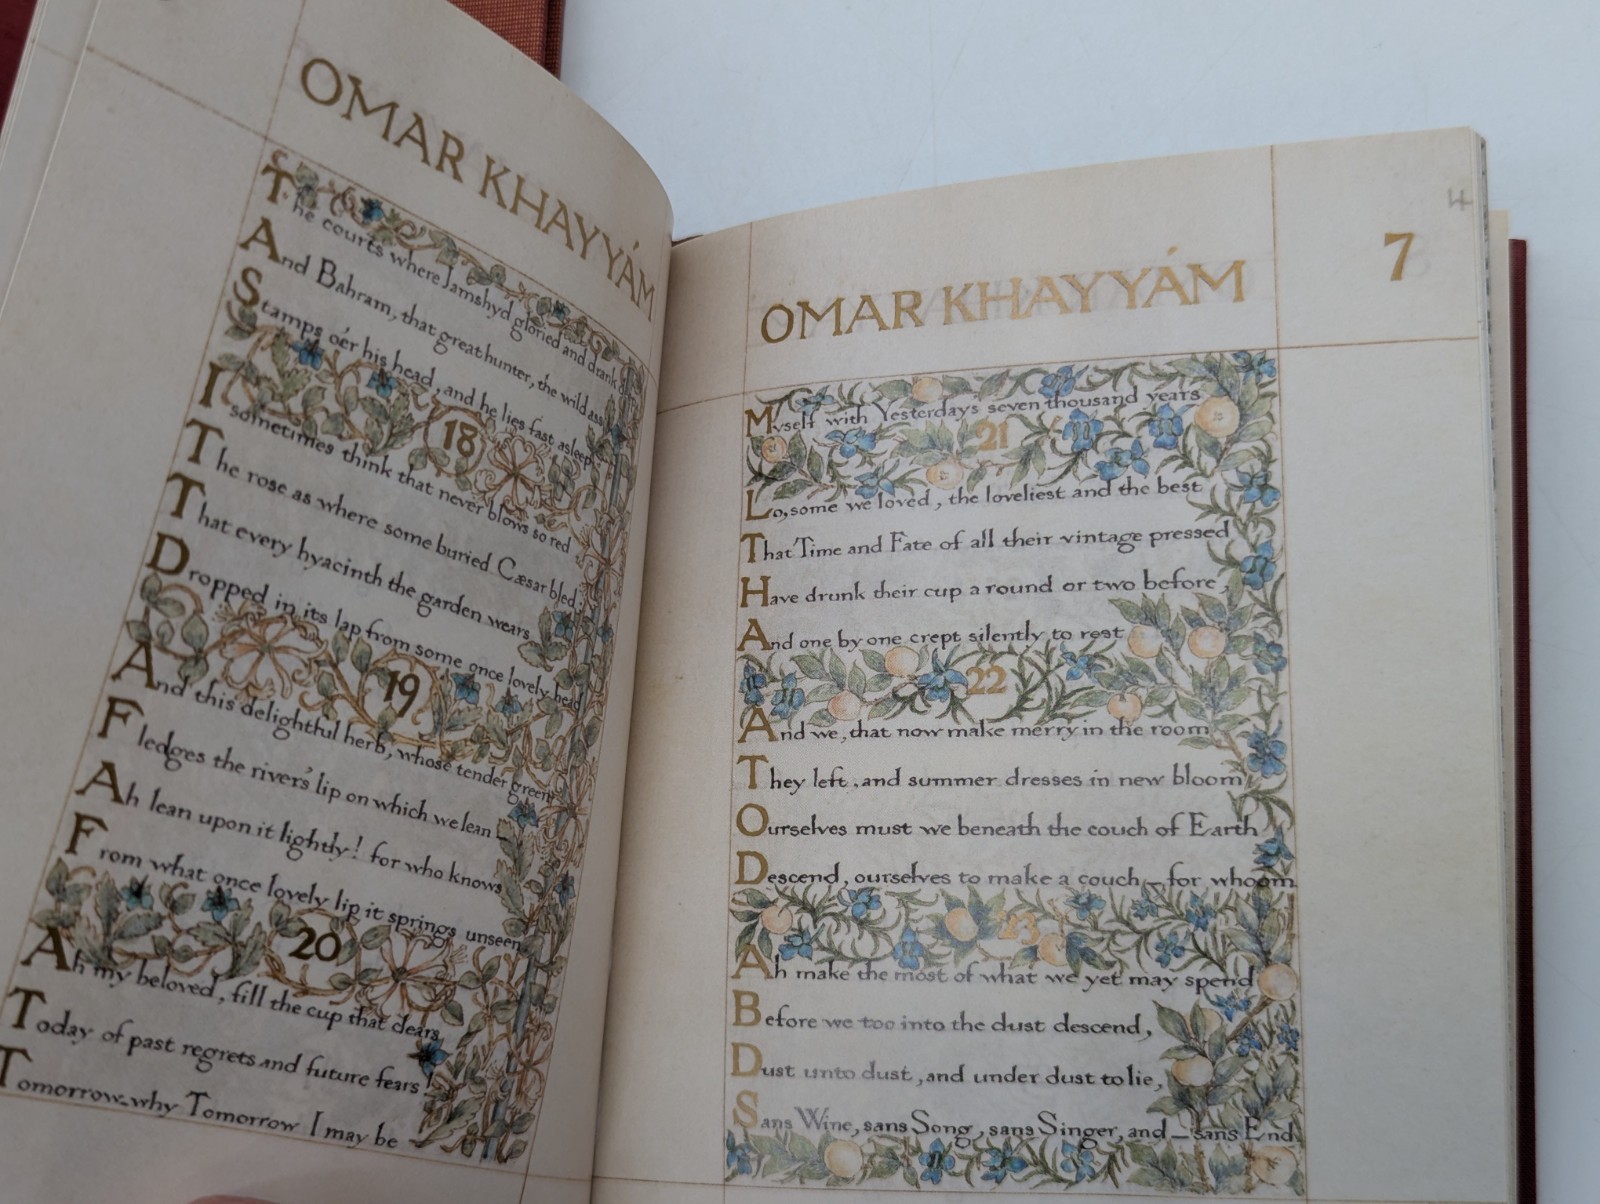 OMAR KHAYYÁM
The courts where Jamshyd gloried and drank
And Bahram, that great hunter, the wild ass
Stamps o'er his head, and he lies fast asleep
18
I sometimes think that never blows so red
The rose as where some buried Cæsar bled;
That every hyacinth the garden wears
Dropped in its lap from some once lovely head
19
And this delightful herb, whose tender green
Fledges the river's lip on which we lean
Ah lean upon it lightly! for who knows
From what once lovely lip it springs unseen
20
Ah my beloved, fill the cup that clears
Today of past regrets and future fears!
Tomorrow-why Tomorrow I may be
4
7
OMAR KHAYYÁM
Myself with Yesterday's seven thousand years
21
Lo, some we loved, the loveliest and the best
That Time and Fate of all their vintage pressed
Have drunk their cup a round or two before,
And one by one crept silently to rest
22
And we, that now make merry in the room
They left, and summer dresses in new bloom,
Ourselves must we beneath the couch of Earth
Descend, ourselves to make a couch—for whom
23
Ah make the most of what we yet may spend
Before we too into the dust descend,
Dust unto dust, and under dust to lie,
Sans Wine, sans Song, sans Singer, and—sans End.